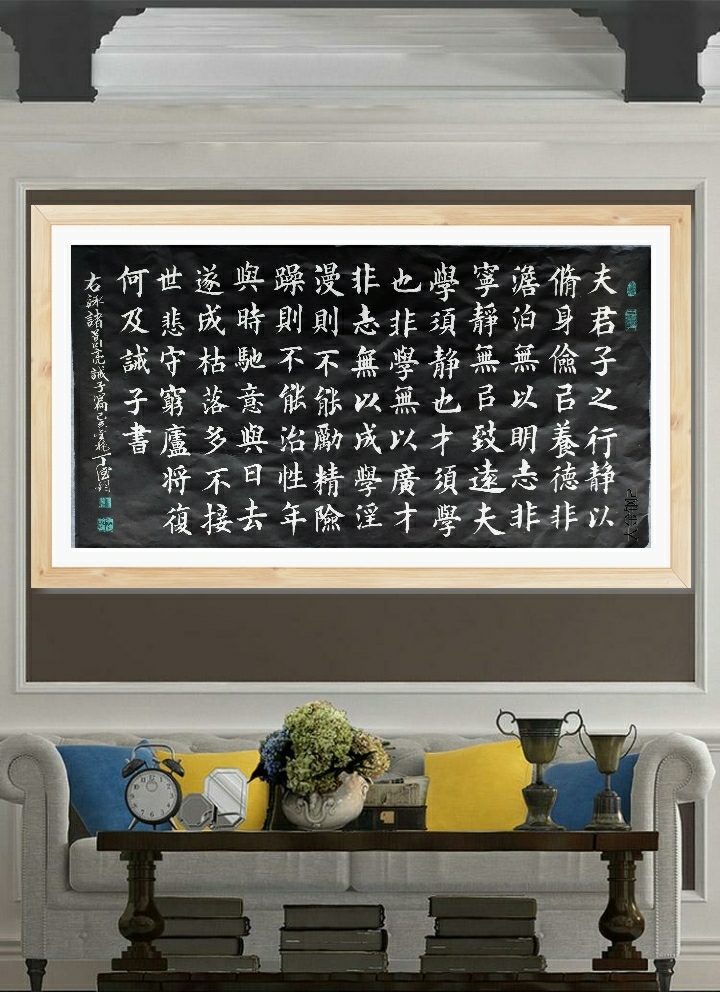 夫君子之行静以
脩身儉㠯養德非
澹泊無以明志非
寧靜無㠯致遠夫
學須静也才須學
也非學無以廣才
非志無以成學淫
漫則不能勵精險
躁則不能治性年
與時馳意與日去
遂成枯落多不接
世悲守窮廬将復
何及誡子書
右錄諸葛亮誡子篇己亥金秋丁國